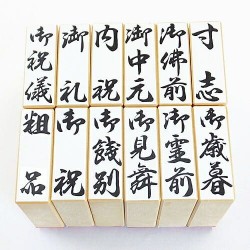 寸志
御佛前
御中元
内祝
御礼
御祝儀
御歳暮
御霊前
御見舞
御餞別
御祝
粗品